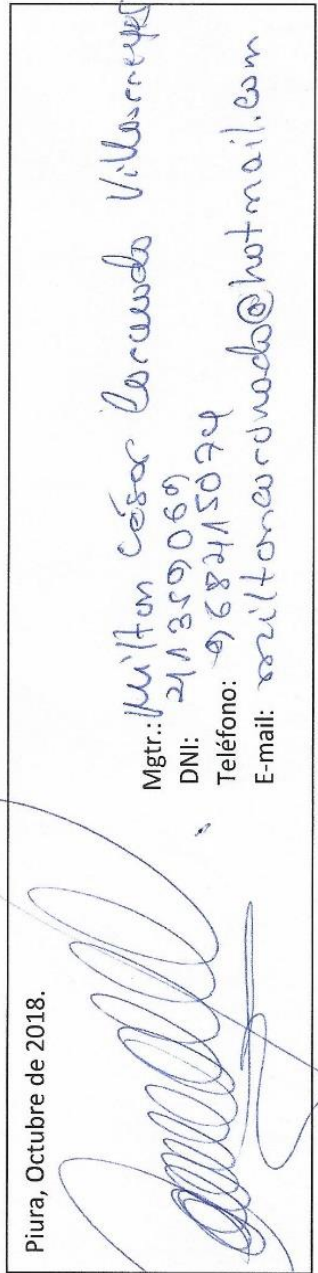 Piura, Octubre de 2018.
Mgtr.: Milton César Coronado Villarreyes
DNI: 41359069
Teléfono: 968415074
E-mail: miltoncoronado@hotmail.com